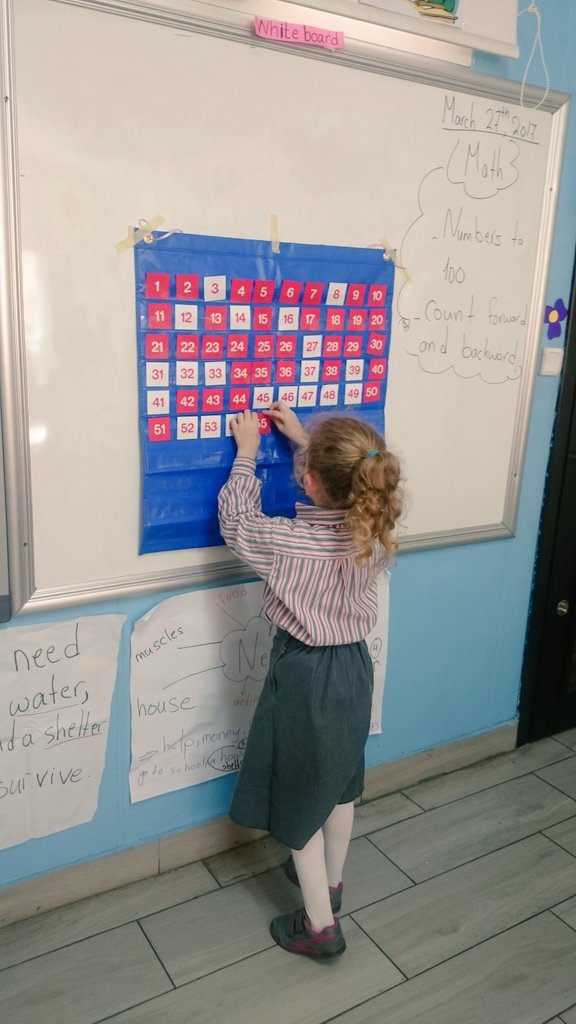 White board
March 27th, 2017
Math
- Numbers to
100
- count forward
and backward
1 2 3 4 5 6 7 8 9 10
11 12 13 14 15 16 17 18 19 20
21 22 23 24 25 26 27 28 29 30
31 32 33 34 35 36 37 38 39 40
41 42 43 44 45 46 47 48 49 50
51 52 53 55
need
water,
a shelter
survive.
food
muscles
Ne
house
help, money,
go to school, a